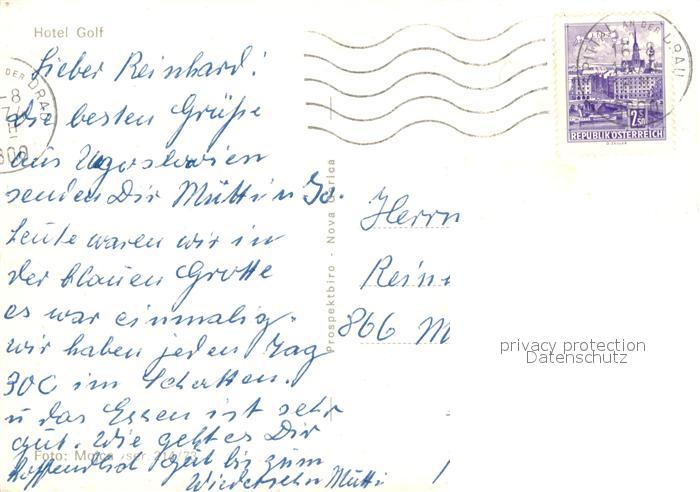 Hotel Golf
Lieber Reinhard!
die besten Grüße
aus Ugoslavien
senden Dir Mutti u
heute waren wir in
der blauen Grotte
es war einmalig.
wir haben jeden Tag
30C im Schatten.
u das Essen ist sehr
gut. Wie geht es Dir
Hoffendlich gut bis zum
Wiedersehn Mutti
Foto:
Prospektbiro - Nova Gorica
AN DER DRAU
DER DRAU
2.50
REPUBLIK ÖSTERREICH
Herrn
Rein
866 M
privacy protection
Datenschutz